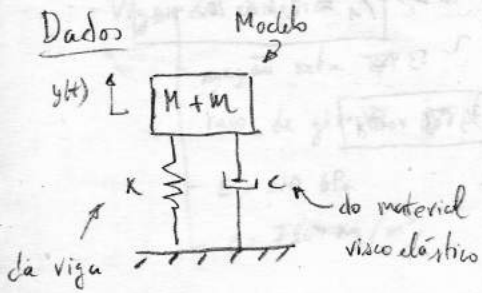 Dados
Modelo
y(t)
M + m
K
C
do material
viscoelástico
da viga